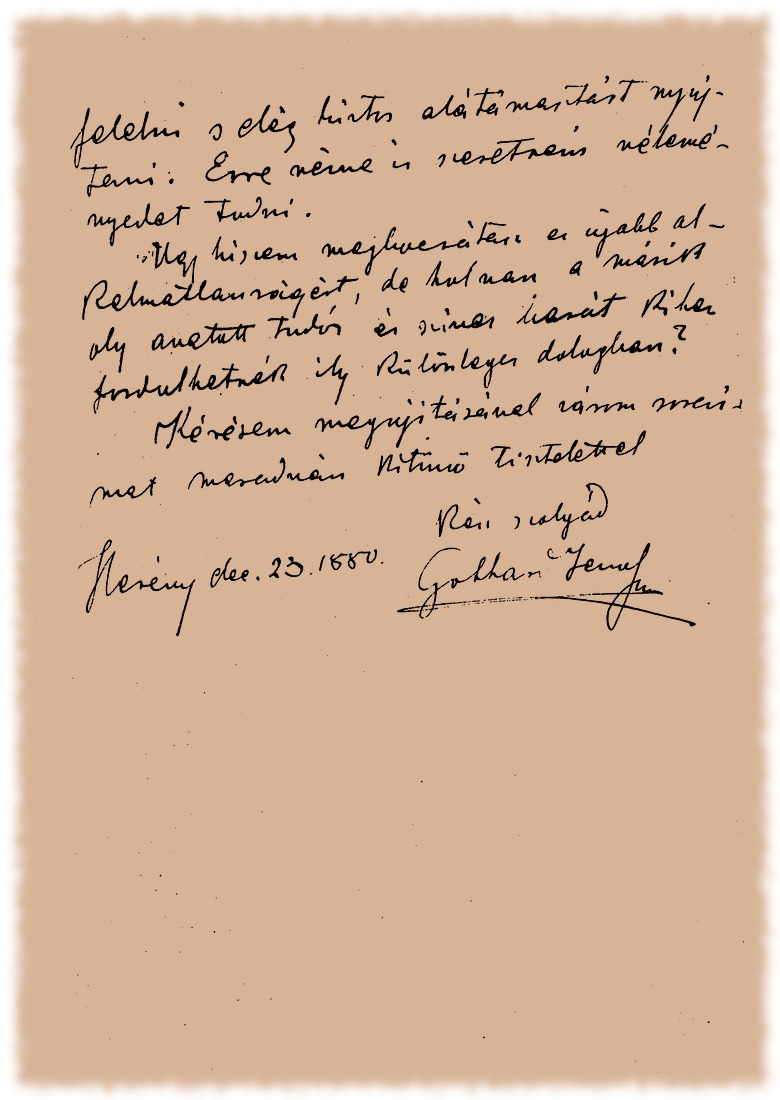 felelni s elég biztos alátámasztást nyúj-
tani. Erre nézve is szeretném vélemé-
nyedet tudni.
Úgy hiszem megbocsátasz ez újabb al-
kalmatlanságért, de hol van a másik
oly avatott tudós és szíves barát kihez
fordulhatnék ily különleges dologban?
Kérésem megújításával zárom soraim-
mat maradván kitűnő tisztelettel
kész szolgád
Herény dec. 23. 1880. Gothard Jenő